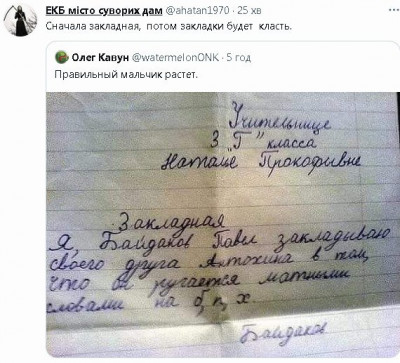 ЕКБ місто суворих дам @ahatan1970 · 25 хв
Сначала закладная, потом закладки будет класть.
Олег Кавун @watermelonONK · 5 год
Правильный мальчик растет.
Учительнице
3 „Г" класса
Наталье Прокофивне
Закладная
Я, Байдаков Павел закладываю
своего друга Антохина в том,
что он ругается матными
словами на б, п, х.
Байдаков